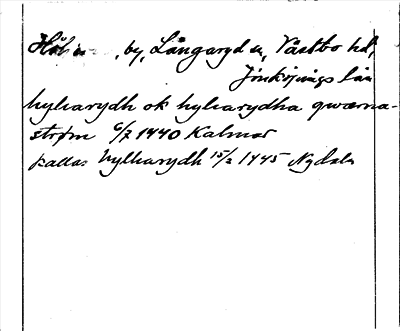 by, Långaryd sn, Västbo hd,
Jönköpings län
hylearydh ok hylearydha qwærna-
strøm 6/7 1440 Kalmar
kallas hylhærydh 15/2 1445 Nydala